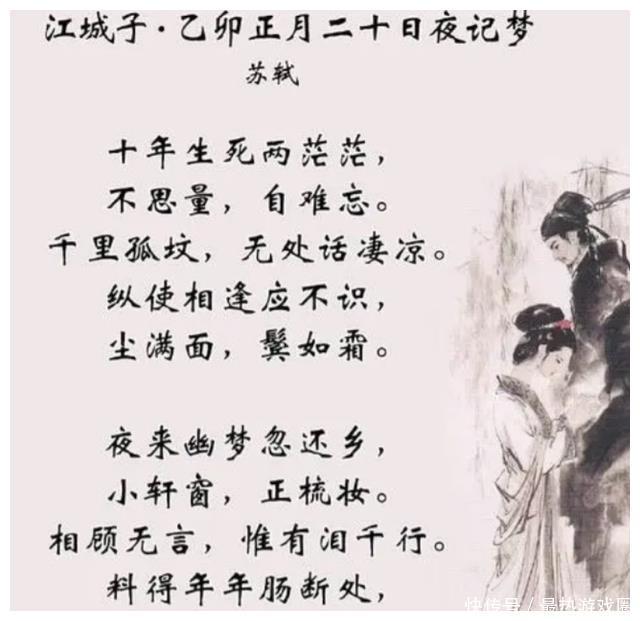 江城子·乙卯正月二十日夜记梦
苏轼
十年生死两茫茫，
不思量，自难忘。
千里孤坟，无处话凄凉。
纵使相逢应不识，
尘满面，鬓如霜。
夜来幽梦忽还乡，
小轩窗，正梳妆。
相顾无言，惟有泪千行。
料得年年肠断处，
快传号／最热游戏圈